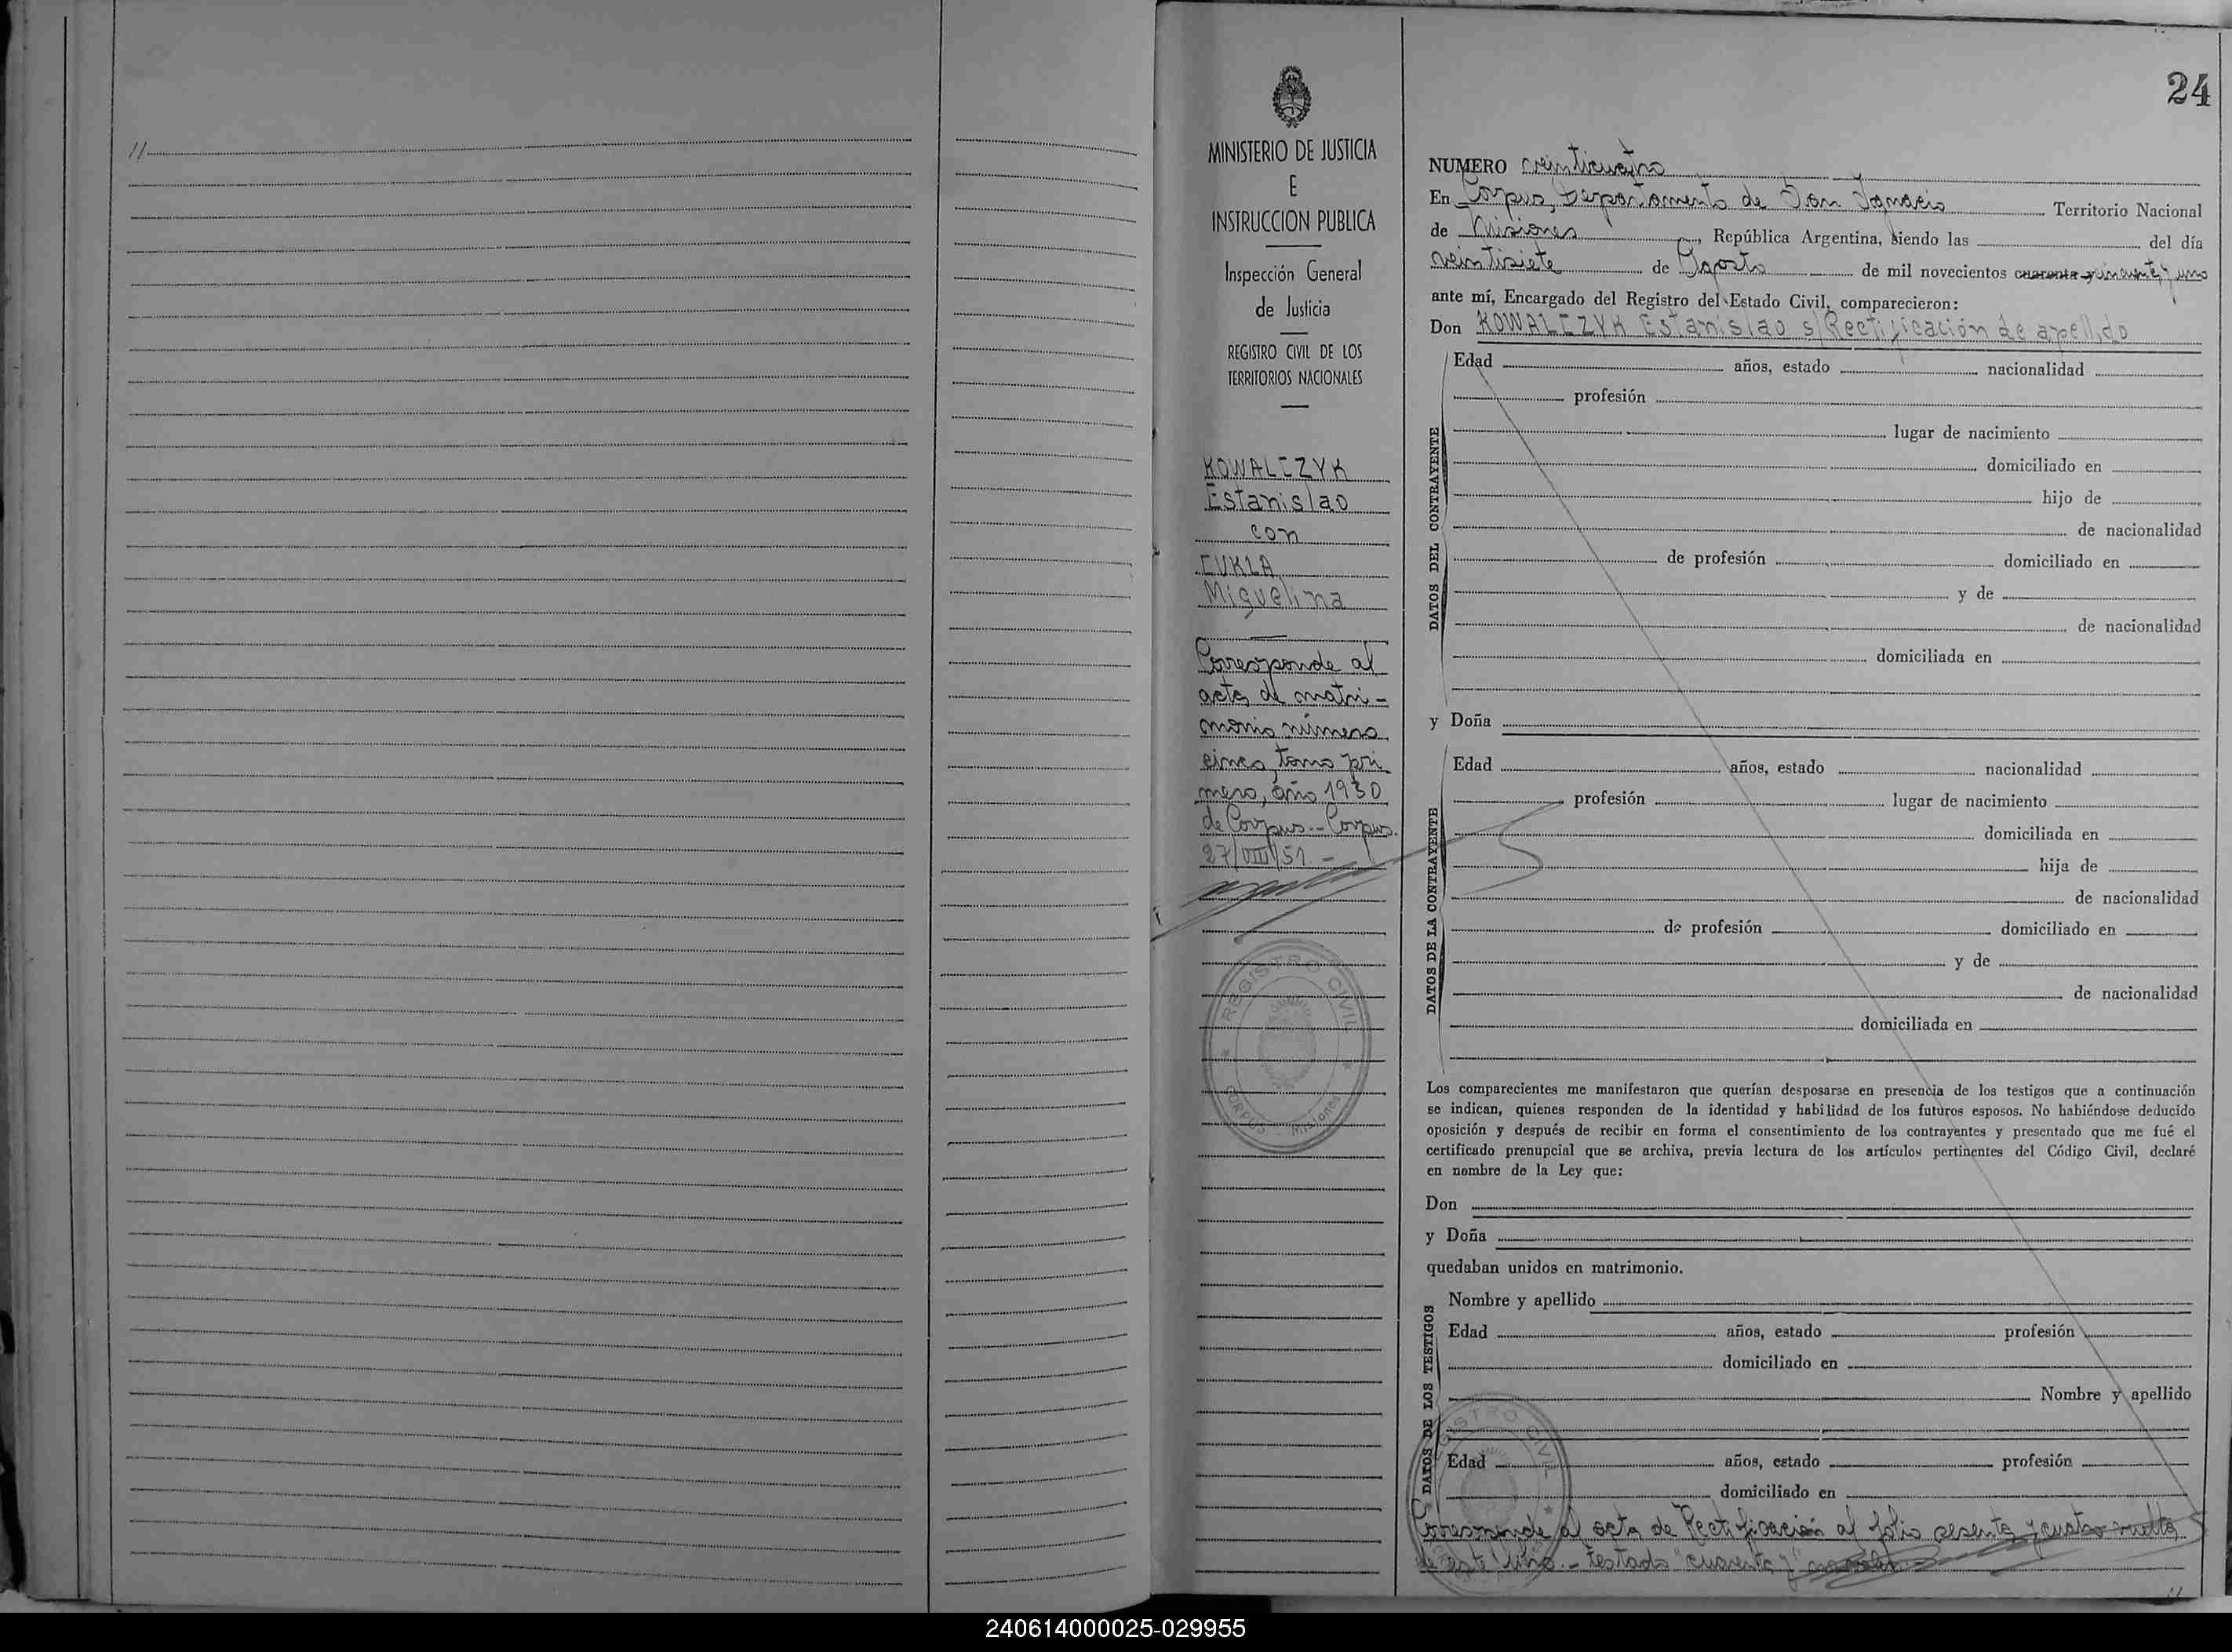 //
24
MINISTERIO DE JUSTICIA
E
INSTRUCCION PUBLICA
Inspección General
de Justicia
REGISTRO CIVIL DE LOS
TERRITORIOS NACIONALES
KOWALCZYK
Estanislao
con
CUKLA
Miguelina
Corresponde al
acta de matri-
monio número
cinco, tomo pri
mero, año 1930
de Corpus.- Corpus.
27/VIII/51.-
REGISTRO CIVIL
CORPUS - Misiones
NUMERO veinticuatro
En Corpus, Departamento de San Ignacio Territorio Nacional
de Misiones, República Argentina, siendo las del día
veintisiete de Agosto de mil novecientos cuarenta y cincuenta y uno
ante mí, Encargado del Registro del Estado Civil, comparecieron:
Don KOWALCZYK Estanislao s/Rectificación de apellido
DATOS DEL CONTRAYENTE
Edad años, estado nacionalidad
profesión
lugar de nacimiento
domiciliado en
hijo de
de nacionalidad
de profesión domiciliado en
y de
de nacionalidad
domiciliada en
y Doña
DATOS DE LA CONTRAYENTE
Edad años, estado nacionalidad
profesión lugar de nacimiento
domiciliada en
hija de
de nacionalidad
de profesión domiciliado en
y de
de nacionalidad
domiciliada en
Los comparecientes me manifestaron que querían desposarse en presencia de los testigos que a continuación
se indican, quienes responden de la identidad y habilidad de los futuros esposos. No habiéndose deducido
oposición y después de recibir en forma el consentimiento de los contrayentes y presentado que me fué el
certificado prenupcial que se archiva, previa lectura de los artículos pertinentes del Código Civil, declaré
en nombre de la Ley que:
Don
y Doña
quedaban unidos en matrimonio.
DATOS DE LOS TESTIGOS
Nombre y apellido
Edad años, estado profesión
domiciliado en
Nombre y apellido
Edad años, estado profesión
domiciliado en
REGISTRO CIVIL
Corresponde al acta de Rectificación al folio sesenta y cuatro vuelta
de este libro.- Testado "cuarenta y"
//
240614000025-029955